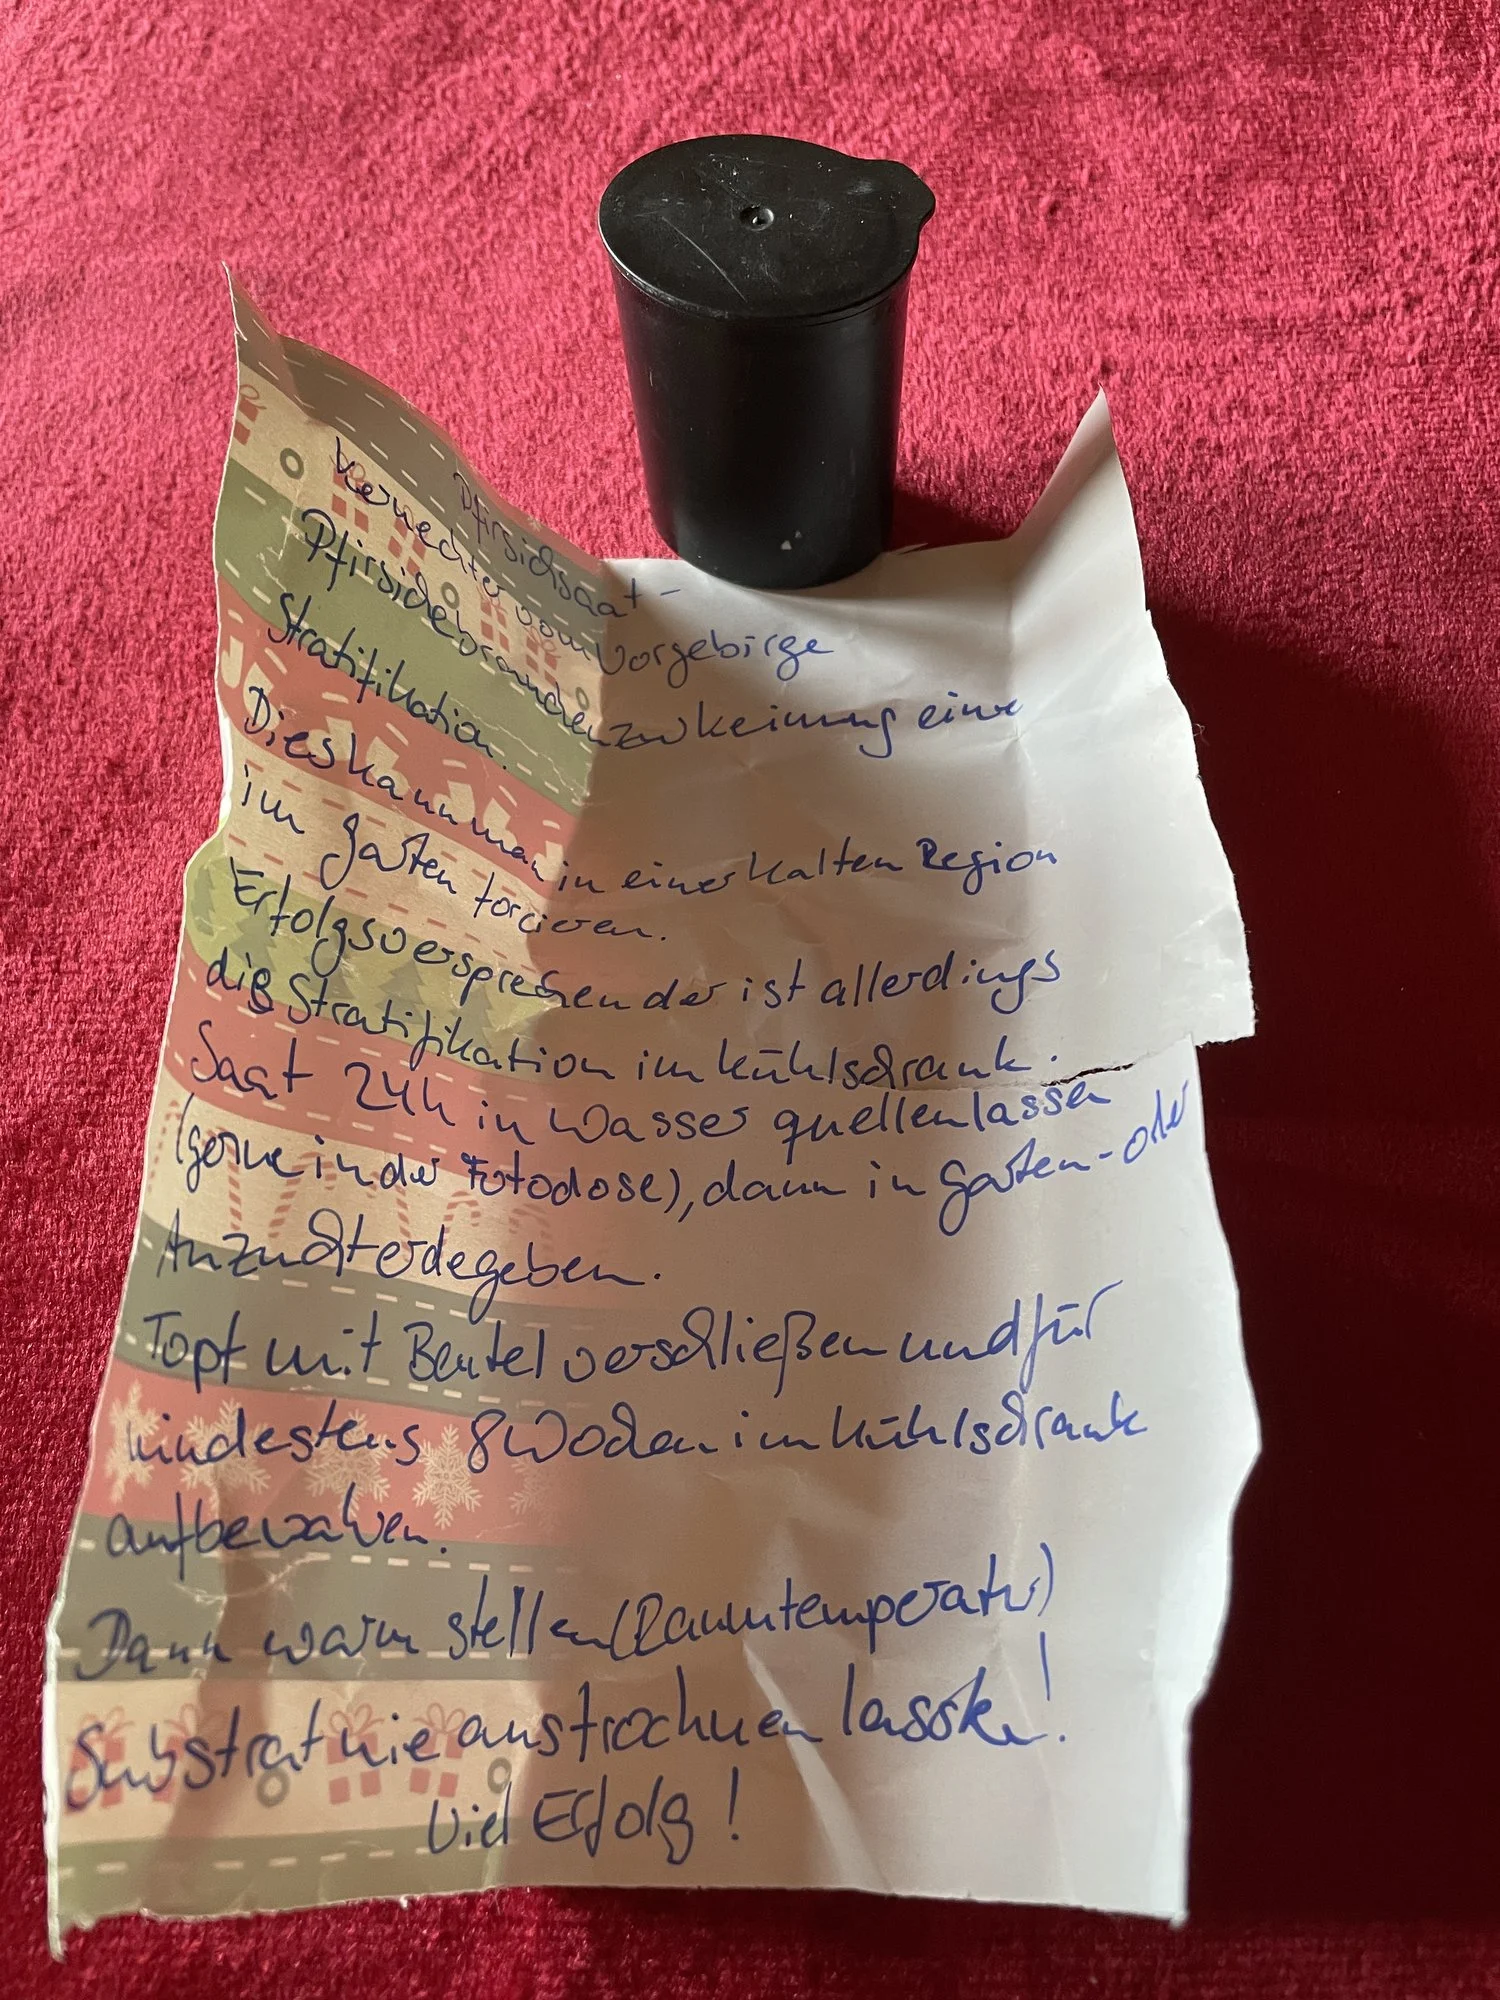 Pfirsichsaat -
Kernechter vom Vorgebirge
Pfirsiche brauchen zur Keimung eine
Stratifikation.
Dies kann man in einer kalten Region
im Garten forcieren.
Erfolgsversprechender ist allerdings
die Stratifikation im Kühlschrank.
Saat 24h in Wasser quellen lassen
(gerne in der Fotodose), dann in Garten- oder
Anzuchterde geben.
Topf mit Beutel verschließen und für
mindestens 8 Wochen im Kühlschrank
aufbewahren.
Dann warm stellen (Raumtemperatur)
Substrat nie austrocknen lassen!
Viel Erfolg!